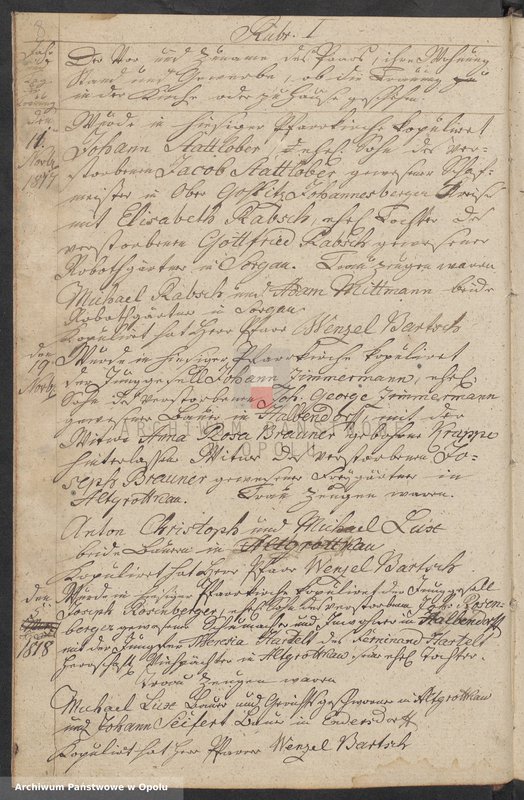 Rubr. I
Der Vor und Zuname des Paars, ihre Wohnung
Stand und Gewerbe, ob die Trauung
in der Kirche oder zu Hause geschehen.
den
11.
Novbr
1817
Wurde in hiesiger Pfarrkirche kopuliret
Johann Stattlober, ehel. Sohn des ver-
storbenen Jacob Stattlober gewesener Schaf-
meister in Ober Johannesberger Kreise
mit Elisabeth Rabsch, ehel. Tochter des
verstorbenen Gottfried Rabsch gewesener
Robothgärtner in Sorgau. Trauzeugen waren
Michael Rabsch und Adam Mittmann beide
Robothgärtner in Sorgau
Kopulirt hat Herr Pfarr Wenzel Bartsch
den
19
Novbr
Wurde in hiesiger Pfarrkirche kopuliret
der Junggesell Johann Zimmermann, ehel.
Sohn des verstorbenen Joh. George Zimmermann
gewesener Bauer in Halbendorf mit der
Witwe Anna Rosa Brauner gebohrne Krappe
hinterlassene Witwe des verstorbenen Jo-
seph Brauner gewesener Freygärtner in
Altgrottkau. Trau Zeugen waren.
Anton Christoph und Michael Luse
beide Bauern in Altgrottkau
Kopulirt hat Herr Pfarr Wenzel Bartsch
den
5
1818
Wurde in hiesiger Pfarrkirche kopuliret der Junggesell
Joseph Rosenberger, ehel. Sohn des verstorbenen Rosen-
berger gewesener Schuhmacher und in Halbendorf
mit der Jungfer Theresia Hartelt des Ferdinand Hartelt
herrschaft. in Altgrottkau ehel. Tochter.
Trau Zeugen waren
Michael Luse Bauer und Gerichtsgeschworner in Altgrottkau
und Johann Seifert Bauer in Endersdorff
Kopulirt hat Herr Pfarrer Wenzel Bartsch
ARCHIWUM PAŃSTWOWE
OPOLU
Archiwum Państwowe w Opolu